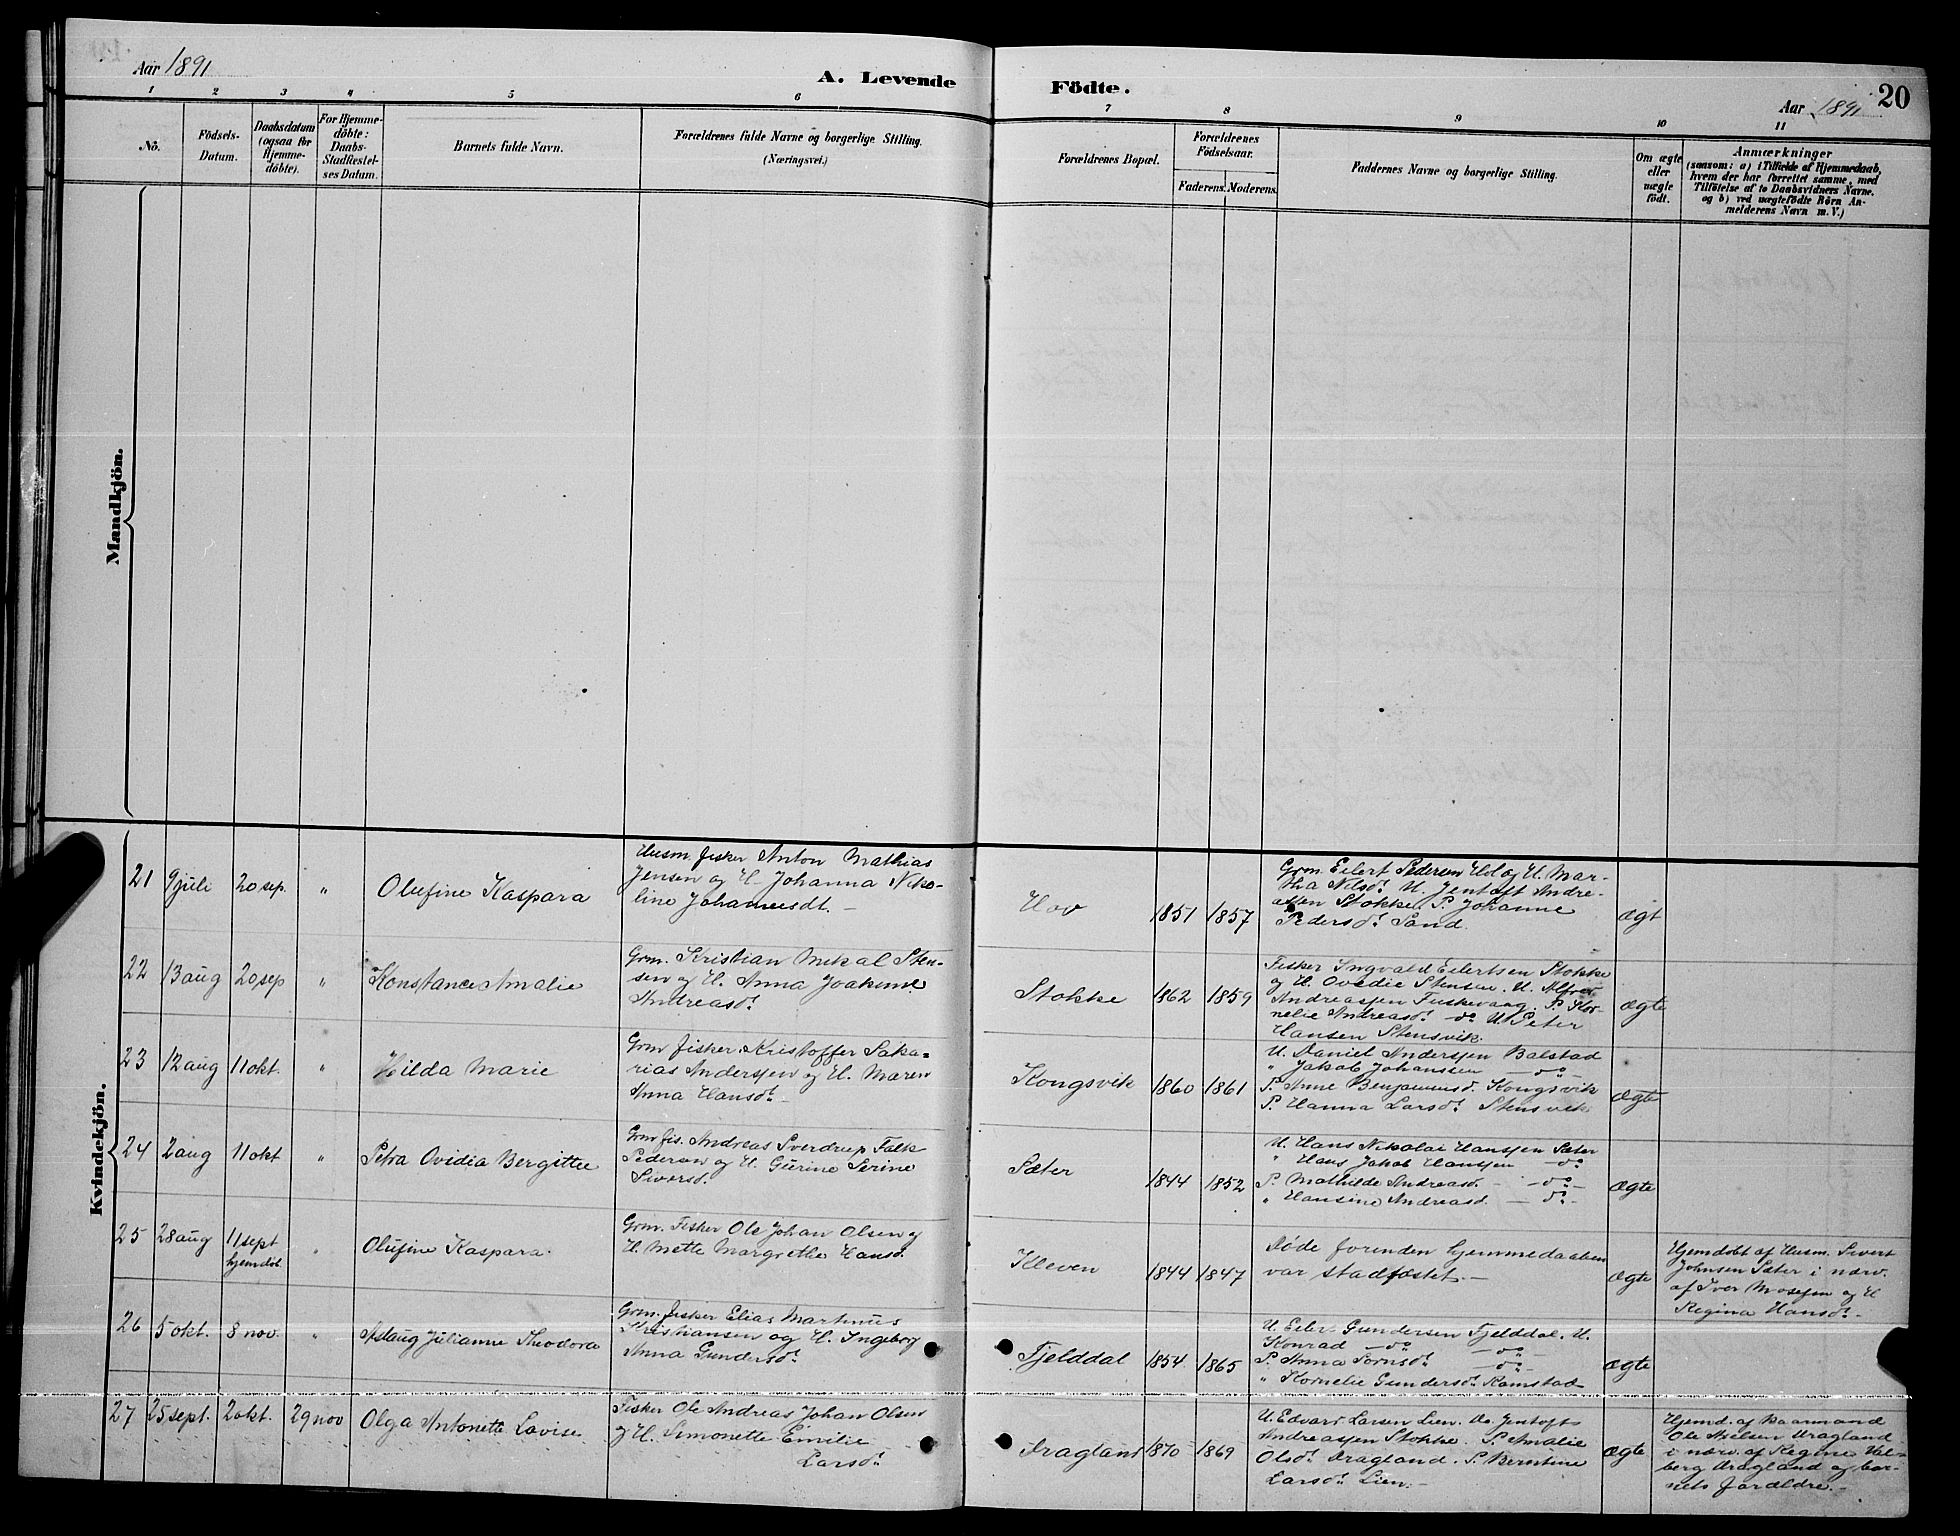 Aar 1891
A. Levende Födte.
Aar 1891 20
1 2 3 4 5 6 7 8 9 10 11
No.
Födsels-
Datum.
Daabsdatum
(ogsaa for
Hjemme-
döbte).
For Hjemme-
döbte:
Daabs-
Stadfæstel-
ses Datum.
Barnets fulde Navn.
Forældrenes fulde Navne og borgerlige Stilling.
(Næringsvei.)
Forældrenes Bopæl.
Forældrenes
Födselsaar.
Faderens. Moderens.
Faddernes Navne og borgerlige Stilling.
Om ægte
eller
uægte
födt.
Anmærkninger
(saasom: a) i Tilfælde af Hjemmedaab,
hvem der har forrettet samme, med
Tilföielse af to Daabsvidners Navne.
og b) ved uægtefödte Börn An-
melderens Navn m. V.)
Mandkjön.
Kvindekjön.
21 9 juli 20 sep. " Olufine Kaspara
Husm. fisker Anton Mathias
Jensen og H. Johanna Niko-
line Johannesdt. –
Hov 1851 1857
Grm. Eilert Pedersen Hol og H. Mar-
tha Nilsdt. U. Jentoft Andre-
assen Stokke. P. Johanne
Pedersdt. Sand.
ægt
22 13 aug 20 sep " Konstance Amalie
Grm. Kristian Mikal Sten-
sen og H. Anna Joakime
Andreasdt.
Stokke 1862 1859
Fisker Ingvald Eilertsen Stokke
og H. Ovedie Stensen. U. Alfred
Andreassen Fiskevaag. P. Kor-
nelie Andreasdt. do U. Peter
Hansen Stensvik.
ægte
23 12 aug 11 okt. " Hilda Marie
Grm fisker Kristoffer Saka-
rias Anderssen og H. Maren
Anna Hansdt.
Kongsvik 1860 1861
U. Daniel Anderssen Balstad
" Jakob Johanssen – do –
P. Anne Benjaminsd. Kongsvik
P. Hanna Larsdt. Stensvik
ægte
24 2 aug 11 okt " Petra Ovidia Bergitte
Grm fis. Andreas Sverdrup Falk
Pedersen og H. Gurine Serine
Siversd.
Sæter 1844 1852
U. Hans Nikolai Hanssen Sæter
" Hans Jakob Hanssen – do
P. Mathilde Andreasd. – do –
" Hansine Andreasd. – do –
ægte
25 28 aug 11 sept
hjemdöt " Olufine Kaspara.
Grm. Fisker Ole Johan Olsen og
H. Mette Margrethe Hansd.
Kleven 1844 1847
Döde forinden hjemmedaaben
var stadfæstet. –
ægte
Hjemdöbt af Husm. Sivert
Johnsen Sæter i nærv.
af Iver Mosesen og H
Regina Hansdt. –
26 5 okt. 8 nov. " Aslaug Julianne Theodora
Grm. fisker Elias Martinus
Kristiansen og H. Ingeborg
Anna Gundersdt.
Fjelddal 1854 1865
U. Eiler Gundersen Fjelddal. U.
Konrad – do – – do –
P. Anna Sornsdt. – do –
" Kornelie Gundersdt. Ramstad
ægte
27 25 sept. 2 okt. 29 nov Olga Antonette Lovise
Fisker Ole Andreas Johan Olsen
og H. Simonette Emilie
Larsdt.
Dragland 1870 1869
U. Edvard Larsen Lien. Do Jentoft
Andreassen Stokke. P. Amalie
Olsdt. Dragland. P. Berntine
Larsdt. Lien. –
ægte
Hjemd. af Baarmand
Ole Nielsen Dragland
i nærv. af Regine Val-
berg Dragland og bar-
nets forældre. –